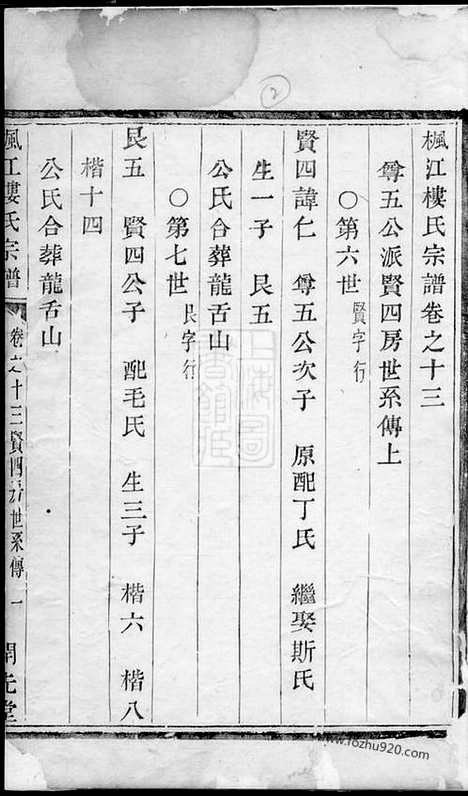 楓江樓氏宗譜卷之十三
尊五公派賢四房世系傳上
○第六世 賢字行
賢四諱仁 尊五公次子 原配丁氏 繼娶斯氏
生一子 艮五
公氏合葬龍舌山
○第七世 艮字行
艮五 賢四公子 配毛氏 生三子 楷六 楷八
楷十四
公氏合葬龍舌山
楓江樓氏宗譜 卷之十三賢四房世系傳 一
2
上海圖書館藏
www.fozhu920.com